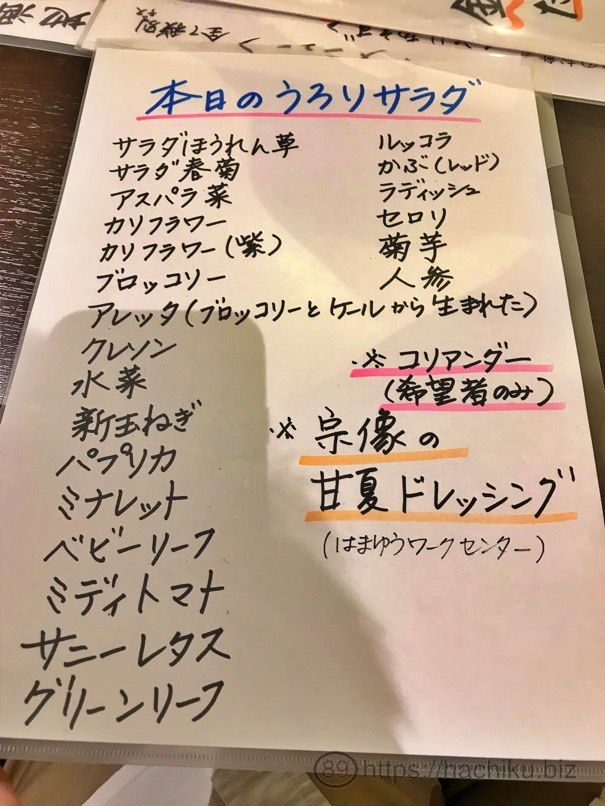 本日のうろりサラダ
サラダほうれん草
サラダ春菊
アスパラ菜
カリフラワー
カリフラワー(紫)
ブロッコリー
アレッタ(ブロッコリーとケールから生まれた)
クレソン
水菜
新玉ねぎ
パプリカ
ミナレット
ベビーリーフ
ミディトマト
サニーレタス
グリーンリーフ
ルッコラ
かぶ(レッド)
ラディッシュ
セロリ
菊芋
人参
※コリアンダー
(希望者のみ)
※宗像の
甘夏ドレッシング
(はまゆうワークセンター)
地酒
89 https://hachiku.biz